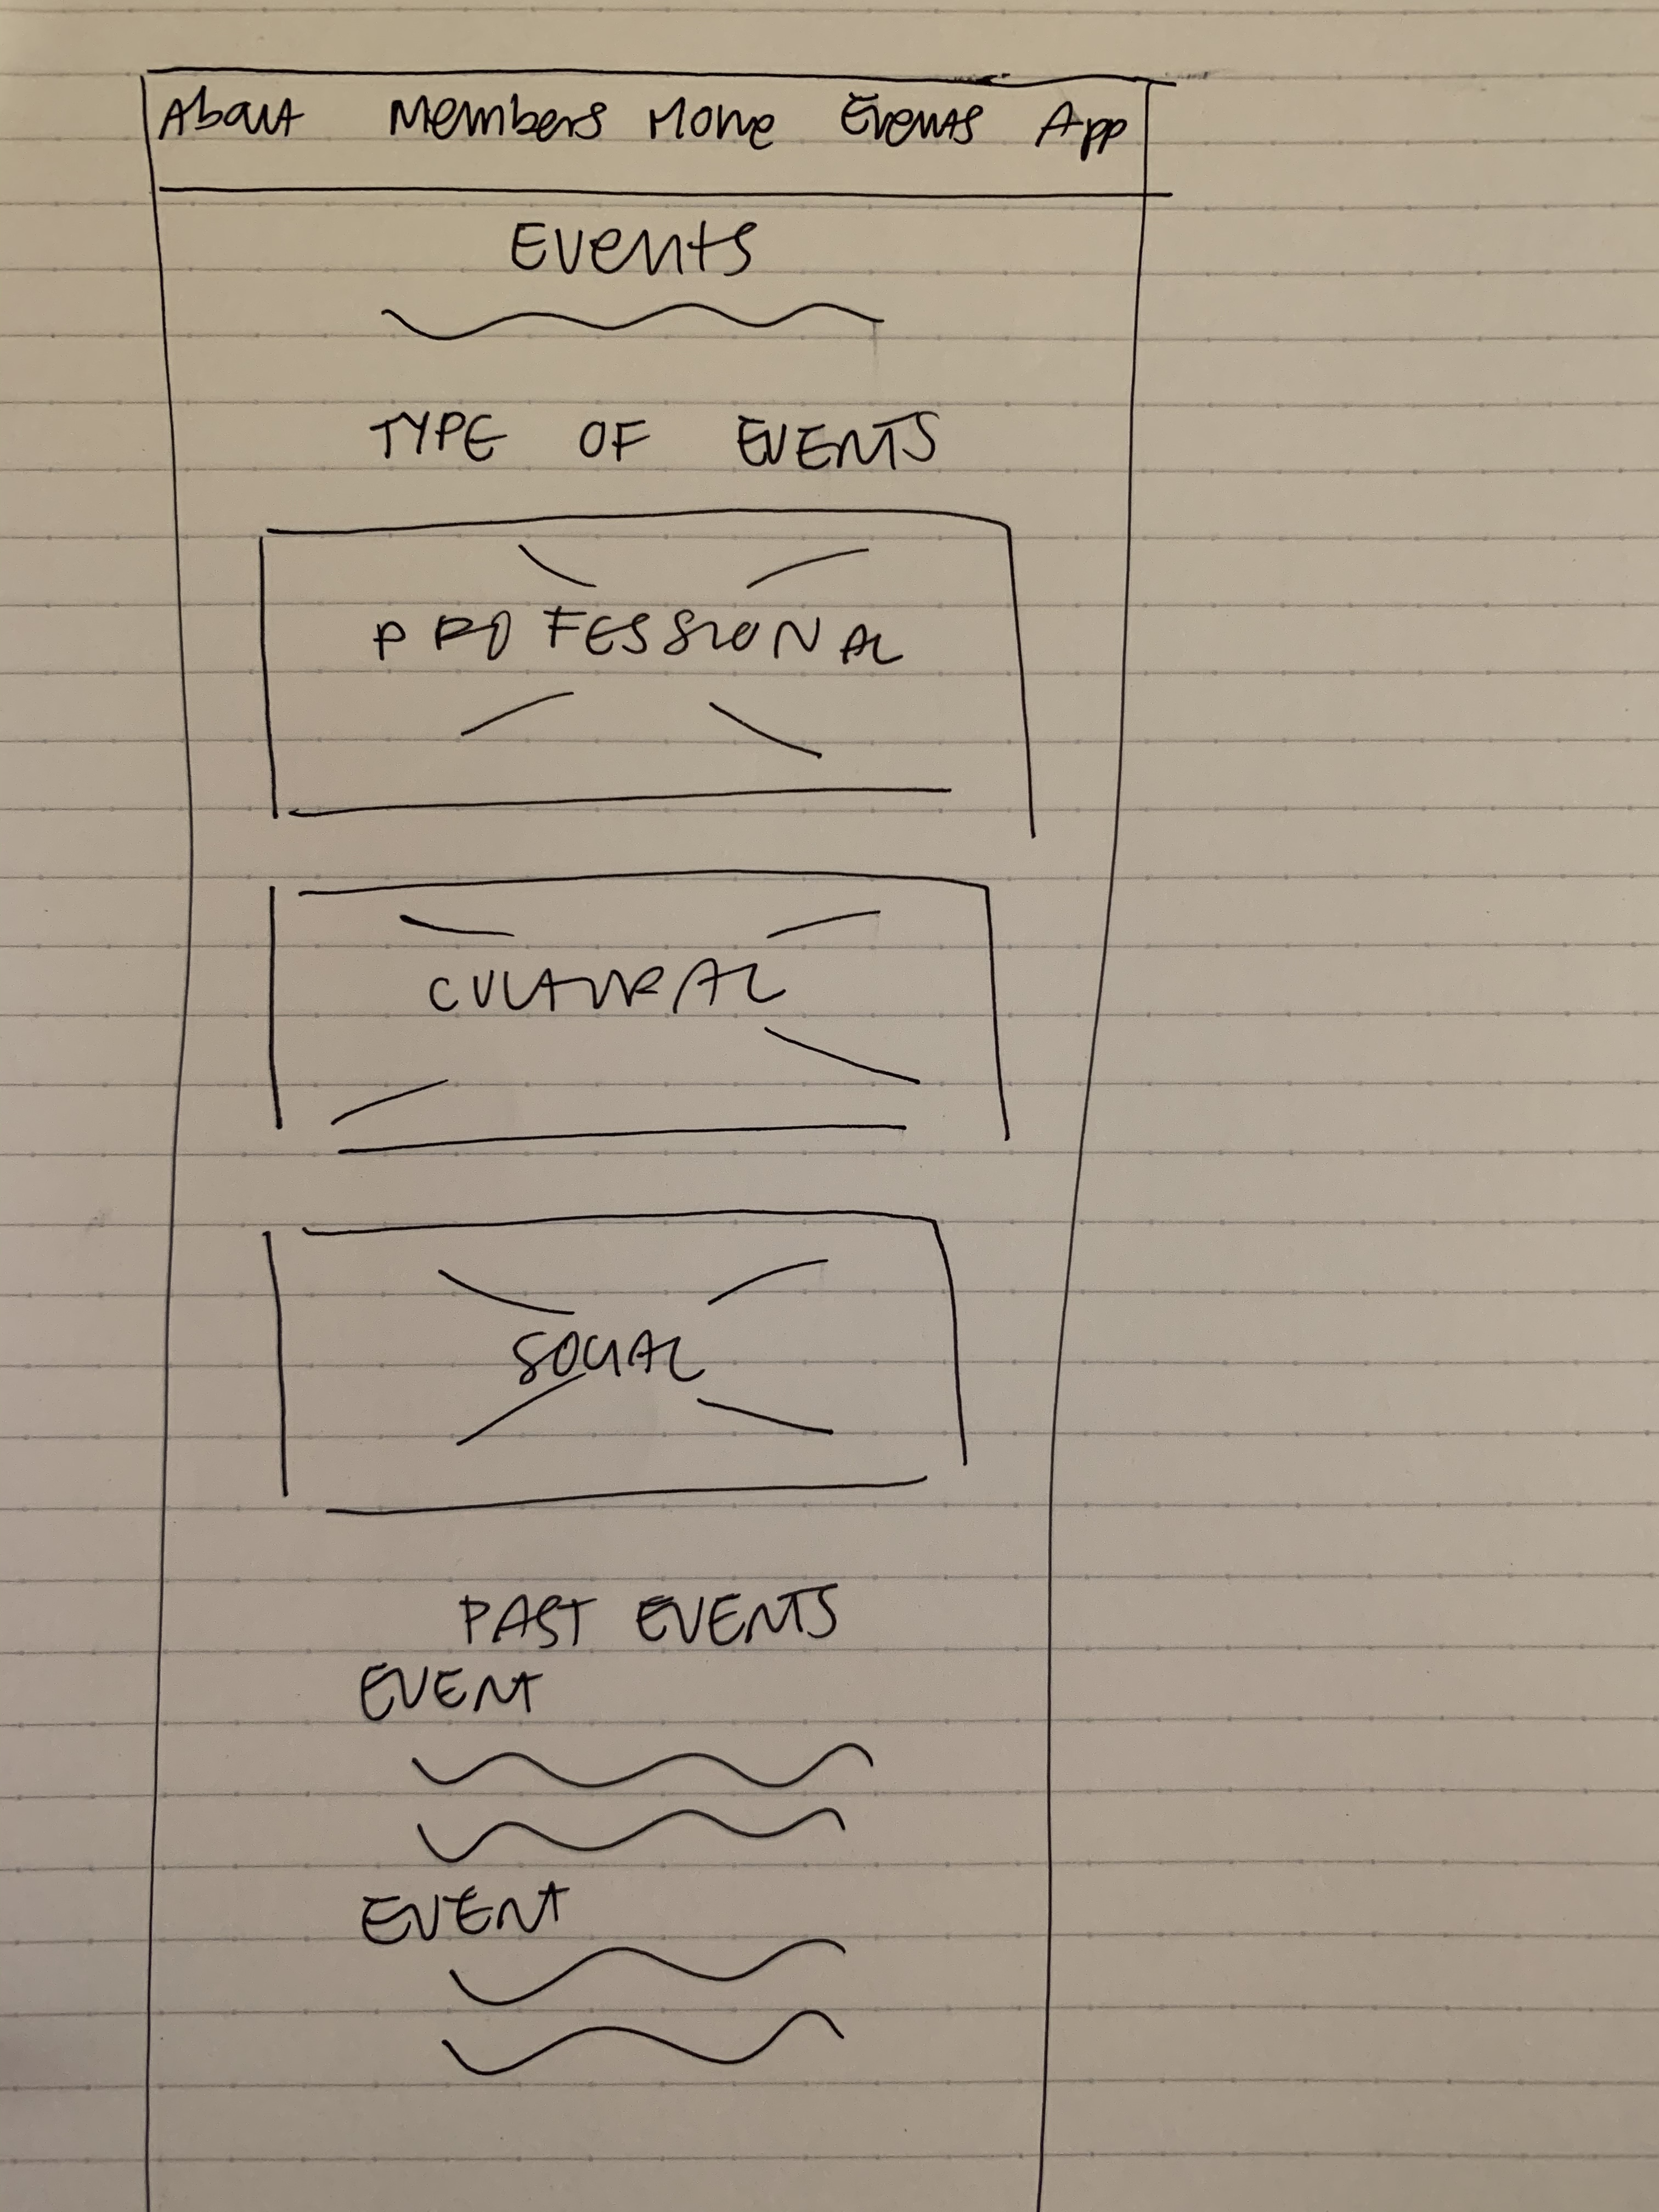 About Members Home Events App
Events
TYPE OF EVENTS
PROFESSIONAL
CULTURAL
SOCIAL
PAST EVENTS
EVENT
EVENT